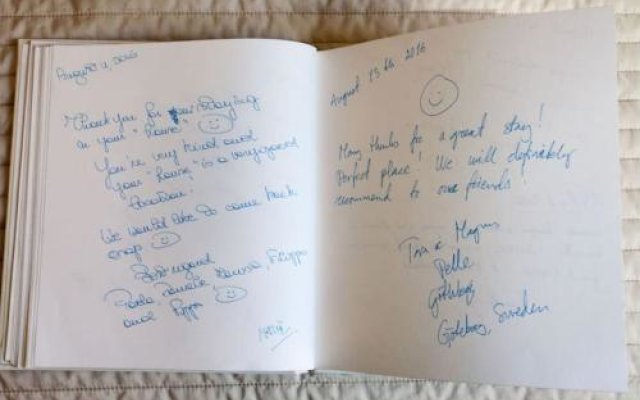 August 4, 2016
Thank you for your staying
in your "house"
You're very kind and
your "house" is a very good
location!
We would like to come back
Best regard
Paola, Daniele,
and Pippo
August 15th 2016
Many thanks for a great stay!
Perfect place! We will definitely
recommend to our friends!
Tina & Magnus
Pelle
Göteborg
Göteborg, Sweden